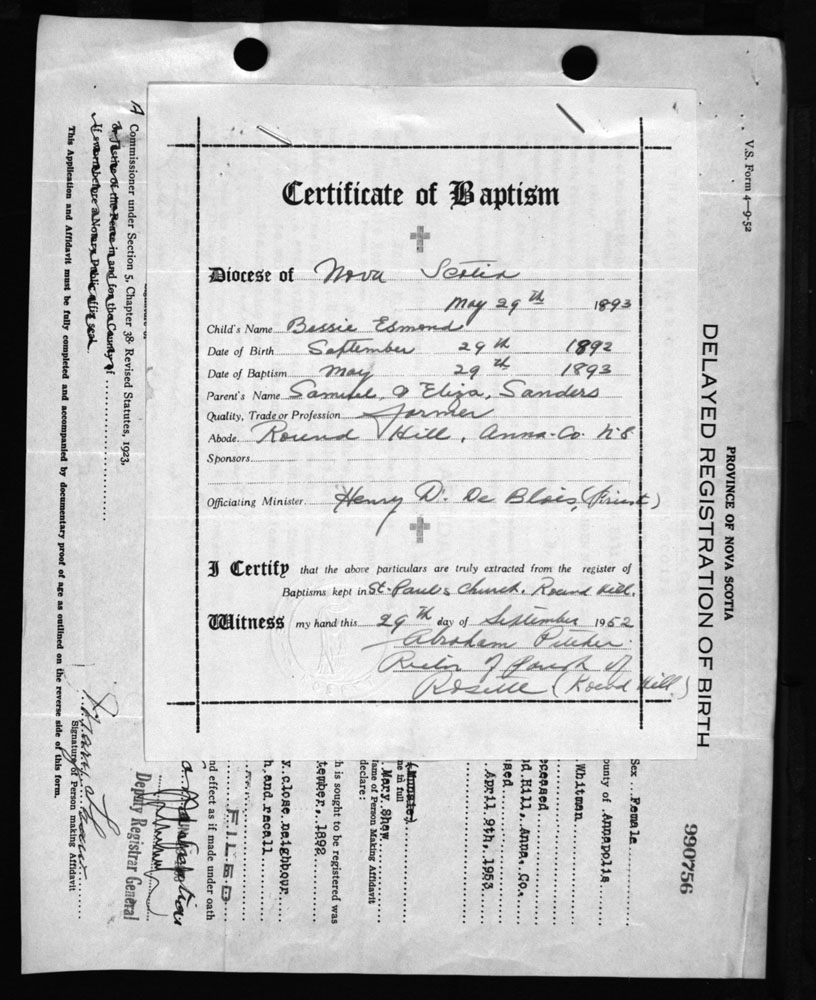 Certificate of Baptism
Diocese of Nova Scotia
May 29th 1893
Child's Name Bessie Esmond
Date of Birth September 29th 1892
Date of Baptism May 29th 1893
Parent's Name Samuel & Eliza, Sanders
Quality, Trade or Profession Farmer
Abode. Round Hill, Anna. Co. N S
Sponsors
Officiating Minister. Henry D. De Blois, (Priest)
I Certify that the above particulars are truly extracted from the register of
Baptisms kept in St. Paul's Church. Round Hill.
Witness my hand this 29th day of September 1952
Abraham
Rector of Parish of
Rosette (Round Hill)
V.S. Form 4—9-52
PROVINCE OF NOVA SCOTIA
DELAYED REGISTRATION OF BIRTH
990756
Sex Female
ounty of Annapolis
Whitman
eceased
d Hill, Anna. Co.
sed
April 9th, 1953
me in full
Mary Shaw
ame of Person Making Affidavit
declare:
h is sought to be registered was
tember, 1892
y, close neighbour
h, and recall
FILED
nd effect as if made under oath
Deputy Registrar General
A Commissioner under Section 5, Chapter 38 Revised Statutes, 1923.
or Justice of the Peace in and for the County of
If sworn before a Notary Public affix seal.
Signature of Person making Affidavit
This Application and Affidavit must be fully completed and accompanied by documentary proof of age as outlined on the reverse side of this form.